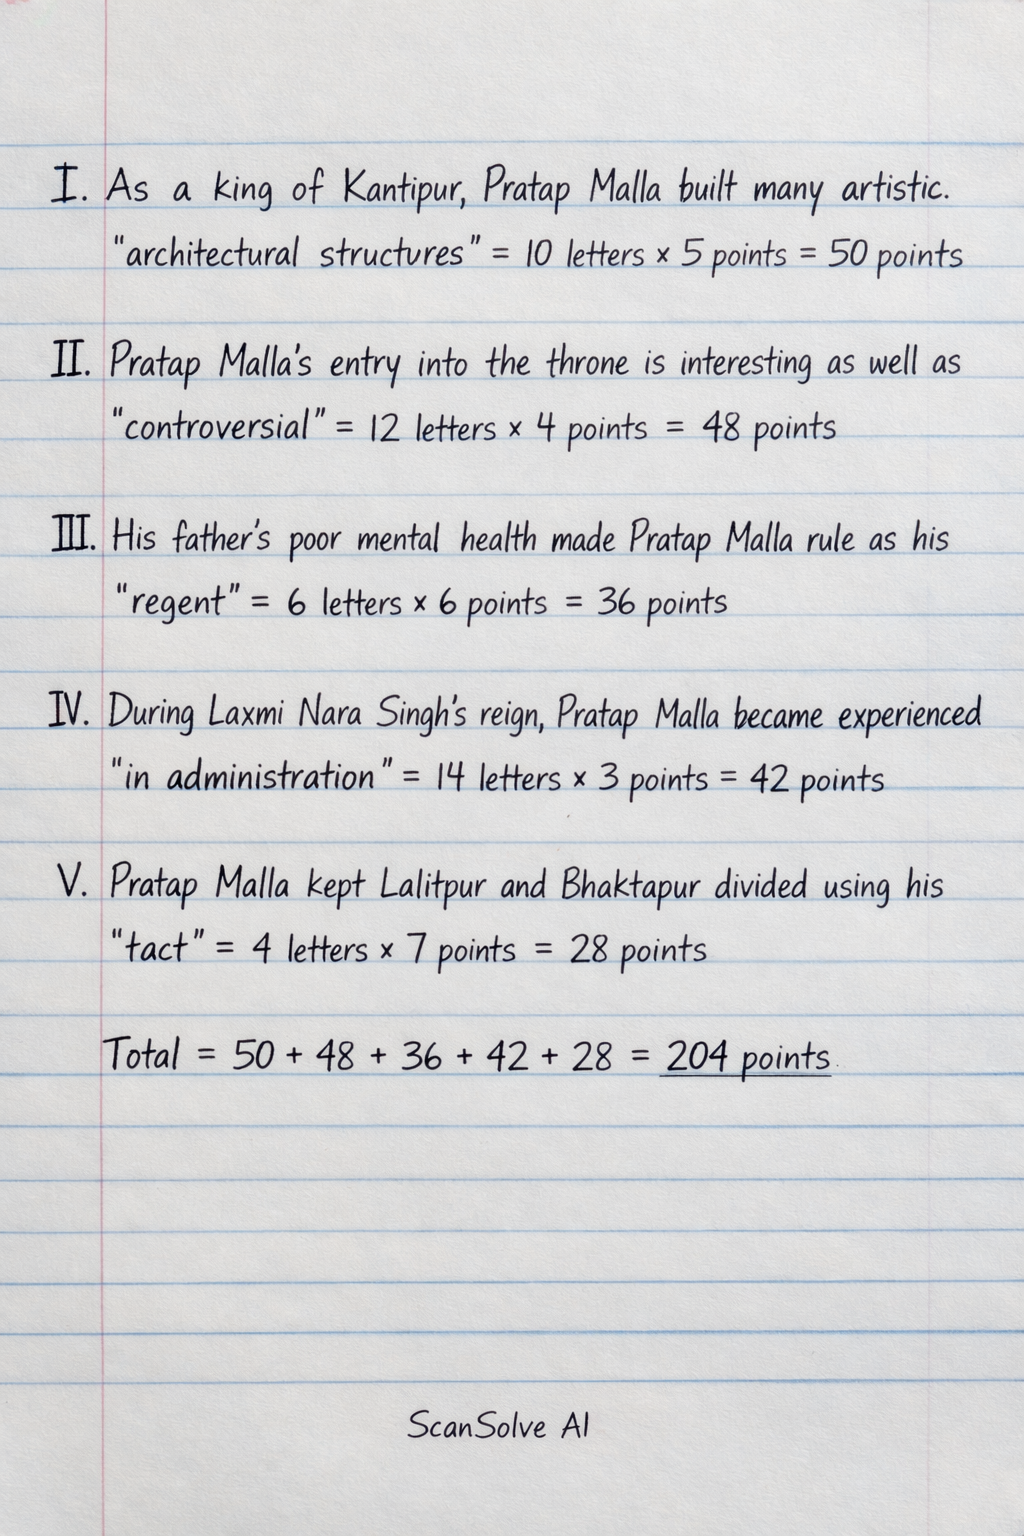 I. As a king of Kantipur, Pratap Malla built many artistic.
"architectural structures" = 10 letters × 5 points = 50 points
II. Pratap Malla's entry into the throne is interesting as well as
"controversial" = 12 letters × 4 points = 48 points
III. His father's poor mental health made Pratap Malla rule as his
"regent" = 6 letters × 6 points = 36 points
IV. During Laxmi Nara Singh's reign, Pratap Malla became experienced
"in administration" = 14 letters × 3 points = 42 points
V. Pratap Malla kept Lalitpur and Bhaktapur divided using his
"tact" = 4 letters × 7 points = 28 points
Total = 50 + 48 + 36 + 42 + 28 = 204 points
ScanSolve AI